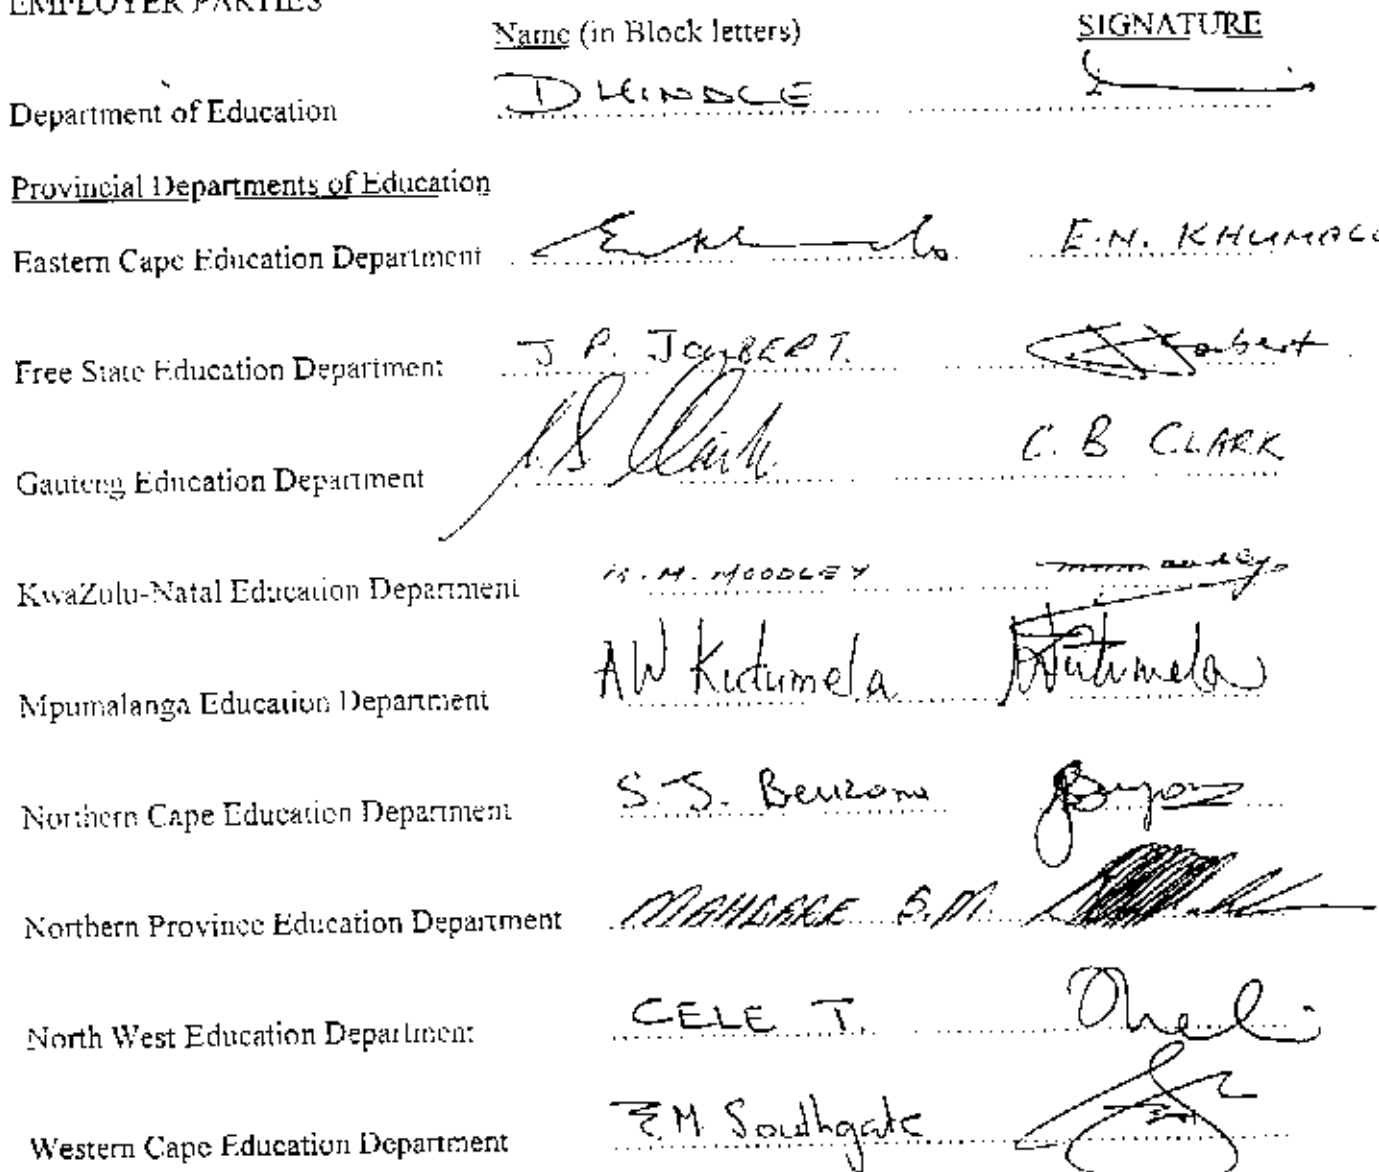 EMPLOYER PARTIES
Name (in Block letters) SIGNATURE
Department of Education D HINDLE
Provincial Departments of Education
Eastern Cape Education Department E.N. KHUMALO
Free State Education Department J P. JOUBERT. Joubert
Gauteng Education Department Clark C. B CLARK
KwaZulu-Natal Education Department M. MOODLEY
Mpumalanga Education Department AW Kutumela Kutumela
Northern Cape Education Department S. J.
Northern Province Education Department S.M.
North West Education Department CELE T.
Western Cape Education Department E M Southgate